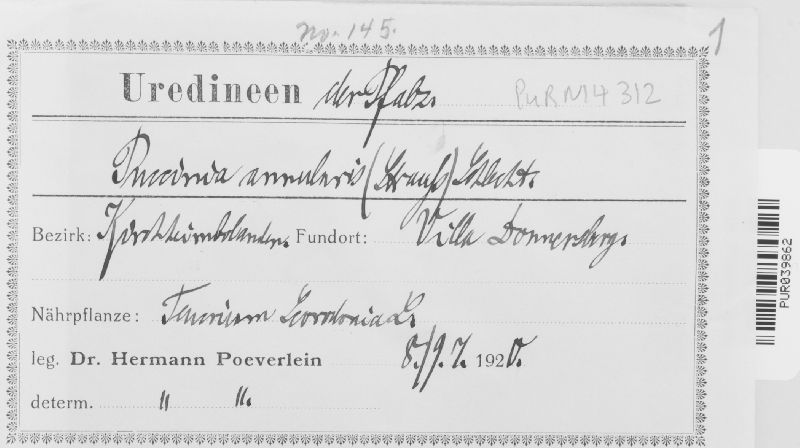 No. 145.
1
Uredineen der Pfalz.
PUR N14312
Puccinia annularis (Strauß) Schlecht.
Bezirk: Kirchheimbolanden. Fundort: Villa Donnersberg.
Nährpflanze: Teucrium Scorodonia L.
leg. Dr. Hermann Poeverlein 8./9.7. 1920.
determ. " ".
PUR039862